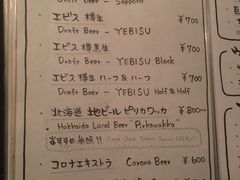 Draft Beer - Sapporo
エビス 樽生 ¥700
Draft Beer - YEBISU
エビス 樽黒生 ¥700
Draft Beer - YEBISU Black
エビス 樽生 ハーフ&ハーフ ¥700
Draft Beer - YEBISU Half & Half
北海道 地ビール ピリカワッカ ¥800~
Hokkaido Local Beer "Pirkawakka"
おすすめ参照!! Please Check Todays Special MENU!!
コロナエキストラ ¥600
Corona Beer